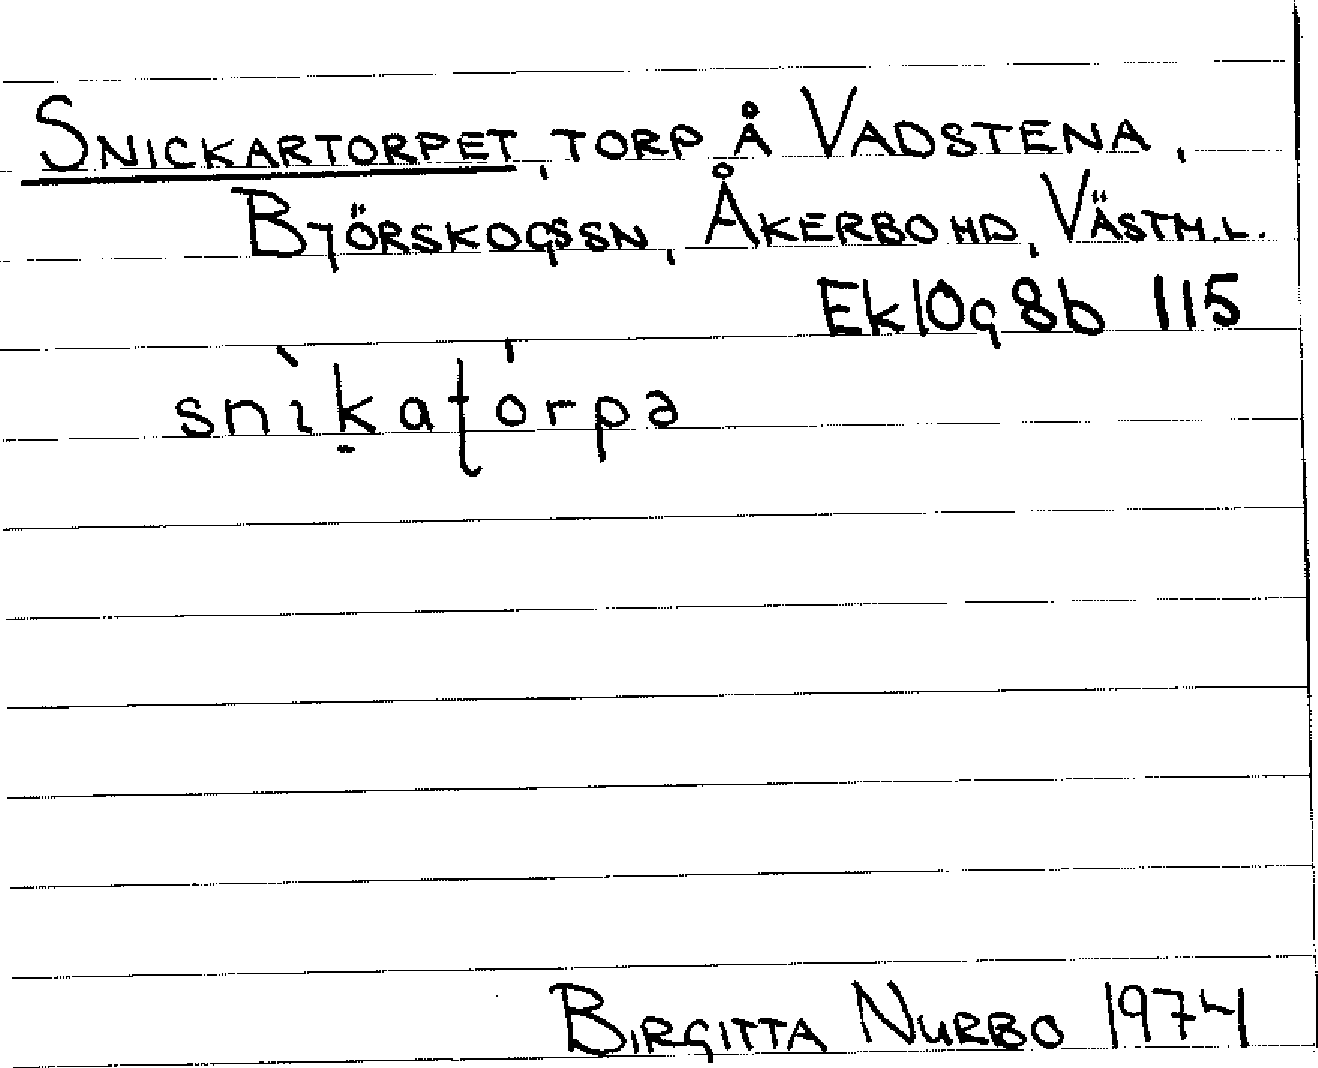 SNICKARTORPET, TORP Å VADSTENA,
BJÖRSKOGSSN, ÅKERBO HD, VÄSTM.L.
Ek10g8b 115
snìk̠aʈórpə
BIRGITTA NURBO 1974